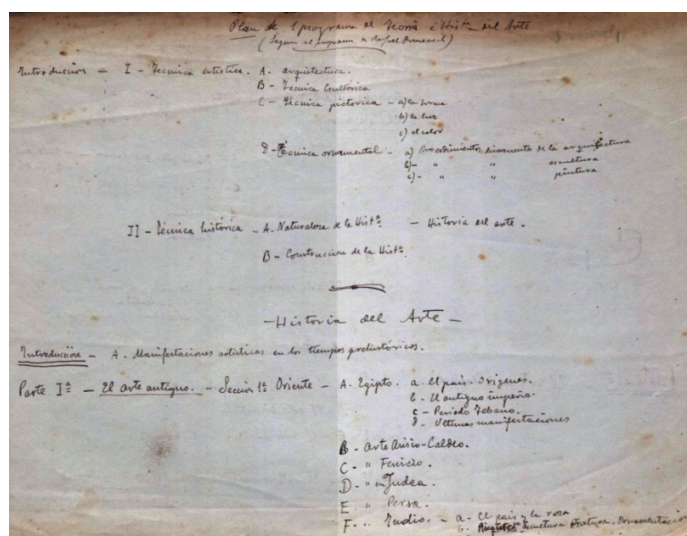 Plan de l programa de Teoria e Histª del Arte
(Segun el programa de Rafael Domenech)
Introduccion — I - Tecnica artistica. A. arquitectura.
B - Tecnica Escultorica
C - Técnica pictorica - a) la forma
b) la luz
c) el color
D - Técnica ornamental - a) Procedimientos dimanantes de la arquitectura
b) - " " escultura
c) - " " pintura
II - Técnica historica - A. Naturaleza de la Histª - Historia del arte.
B - Construccion de la Histª.
- Historia del Arte -
Introduccion - A. Manifestaciones artisticas en los tiempos prehistóricos.
Parte Iª - El arte antiguo. - Seccion 1ª Oriente - A. Egipto. a. El pais. Origenes.
b - El antiguo imperio.
c - Periodo Tebano.
d - Ultimas manifestaciones
B - Arte Asirio-Caldeo.
C - " Fenicio.
D - " en Judea.
E " Persa.
F - " Indio. - a - El pais y la raza
b - escultura pintura. Ornamentacion